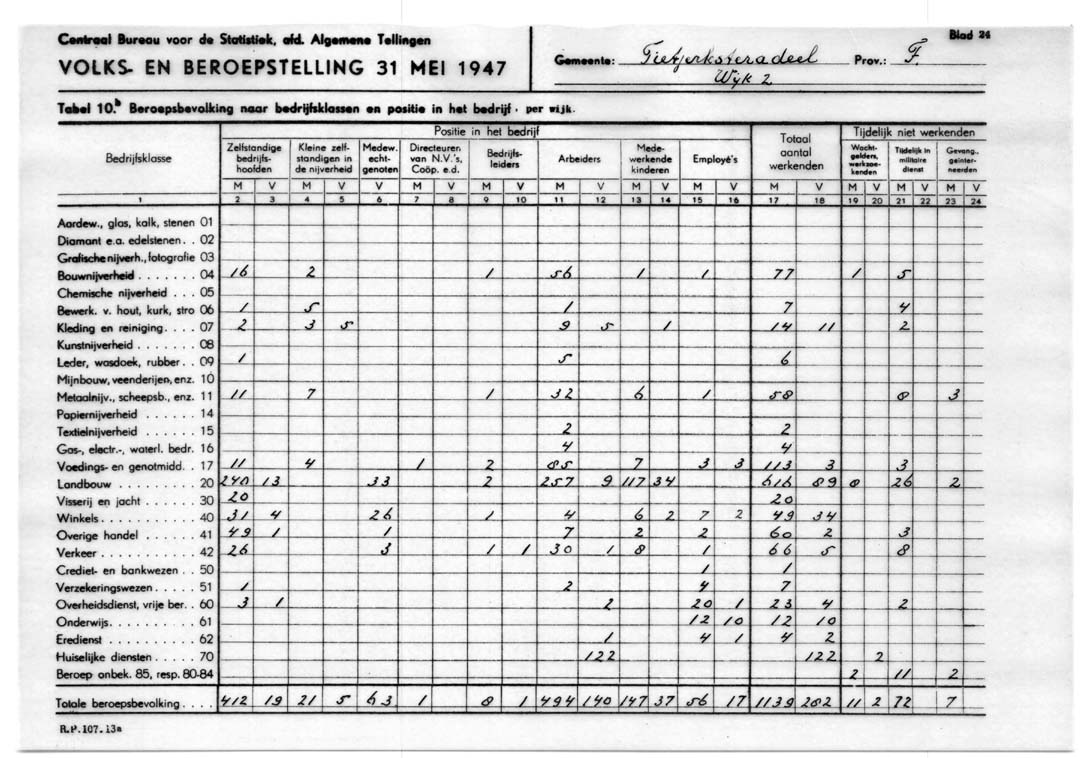 Centraal Bureau voor de Statistiek, afd. Algemene Tellingen
Blad 24
VOLKS- EN BEROEPSTELLING 31 MEI 1947
Gemeente: Tietjerksteradeel Prov.: F.
Wijk 2
Tabel 10.b Beroepsbevolking naar bedrijfsklassen en positie in het bedrijf . per wijk.
Bedrijfsklasse
Positie in het bedrijf
Totaal aantal werkenden
Tijdelijk niet werkenden
Zelfstandige bedrijfs-hoofden
Kleine zelf-standigen in de nijverheid
Medew. echt-genoten
Directeuren van N.V.'s, Coöp. e.d.
Bedrijfs-leiders
Arbeiders
Mede-werkende kinderen
Employé's
Wacht-gelders, werkzoe-kenden
Tijdelijk in militaire dienst
Gevang., geïnter-neerden
M V M V V M V M V M V M V M V M V M V M V M V
1 2 3 4 5 6 7 8 9 10 11 12 13 14 15 16 17 18 19 20 21 22 23 24
Aardew., glas, kalk, stenen 01
Diamant e.a. edelstenen . . 02
Grafische nijverh., fotografie 03
Bouwnijverheid . . . . . . . 04 16 2 1 56 1 1 77 1 5
Chemische nijverheid . . . 05
Bewerk. v. hout, kurk, stro 06 1 5 1 7 4
Kleding en reiniging . . . . 07 2 3 5 9 5 1 14 11 2
Kunstnijverheid . . . . . . 08
Leder, wasdoek, rubber . . 09 1 5 6
Mijnbouw, veenderijen, enz. 10
Metaalnijv., scheepsb., enz. 11 11 7 1 32 6 1 58 8 3
Papiernijverheid 14
Textielnijverheid . . . . . . 15 2 2
Gas-, electr.-, waterl. bedr. 16 4 4
Voedings- en genotmidd. . 17 11 4 1 2 85 7 3 3 113 3 3
Landbouw . . . . . . . . . 20 240 13 33 2 257 9 117 34 616 89 8 26 2
Visserij en jacht . . . . . . 30 20 20
Winkels . . . . . . . . . . . 40 31 4 26 1 4 6 2 7 2 49 34
Overige handel . . . . . . 41 49 1 1 7 2 2 60 2 3
Verkeer . . . . . . . . . . . 42 26 3 1 1 30 1 8 1 66 5 8
Crediet- en bankwezen . . 50 1 1
Verzekeringswezen . . . . . 51 1 2 4 7
Overheidsdienst, vrije ber. . 60 3 1 2 20 1 23 4 2
Onderwijs . . . . . . . . . . 61 12 10 12 10
Eredienst . . . . . . . . . . 62 1 4 1 4 2
Huiselijke diensten . . . . . 70 122 122 2
Beroep onbek. 85, resp. 80-84 2 11 2
Totale beroepsbevolking . . . . 412 19 21 5 63 1 8 1 494 140 147 37 56 17 1139 282 11 2 72 7
R.P.107.13a